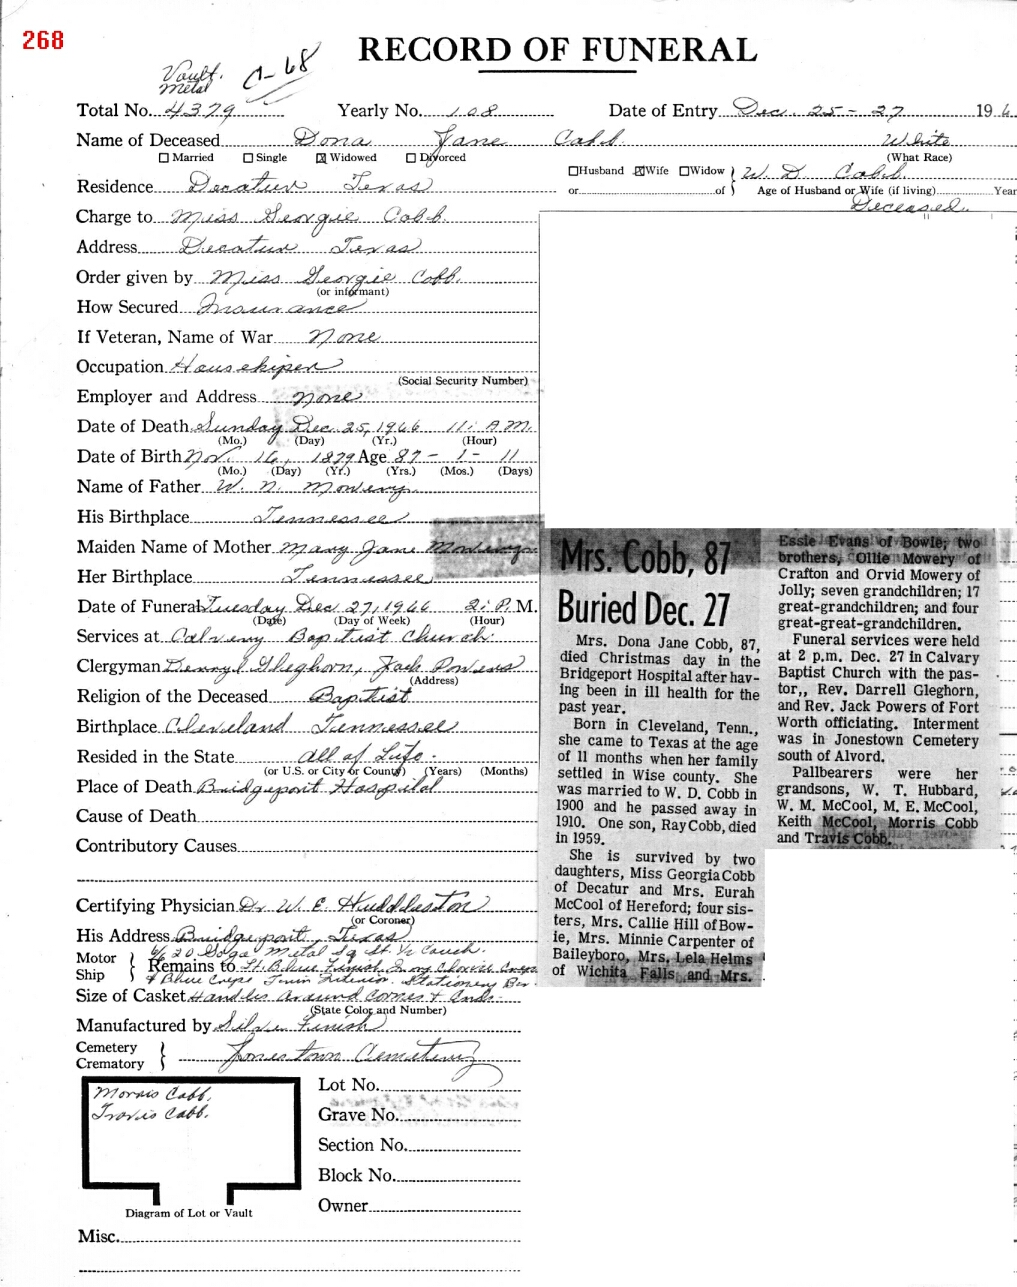 268
RECORD OF FUNERAL
Vault.
Metal
C-68
Total No. 4379 Yearly No. 108 Date of Entry Dec. 25-27 196
Name of Deceased Dona Jane Cobb White
Married Single Widowed Divorced (What Race)
Husband Wife Widow W. D. Cobb
Residence Decatur Texas or of Age of Husband or Wife (if living) Year
Deceased.
Charge to Miss Georgie Cobb
Address Decatur Texas
Order given by Miss Georgie Cobb.
(or informant)
How Secured Insurance
If Veteran, Name of War None
Occupation Housekiper
(Social Security Number)
Employer and Address None
Date of Death Sunday Dec. 25, 1966 11: A.M.
(Mo.) (Day) (Yr.) (Hour)
Date of Birth Nov. 14, 1879 Age 87 - 1 - 11
(Mo.) (Day) (Yr.) (Yrs.) (Mos.) (Days)
Name of Father W. N. Mowery
His Birthplace Tennessee
Maiden Name of Mother Mary Jane Mowery
Her Birthplace Tennessee
Date of Funeral Tuesday Dec 27, 1966 2: P.M.
(Date) (Day of Week) (Hour)
Services at Calvery Baptist Church.
Clergyman Gleghorn, Jack Powers
(Address)
Religion of the Deceased Baptist
Birthplace Cleveland Tennessee
Resided in the State All of Life.
(or U.S. or City or County) (Years) (Months)
Place of Death Bridgeport Hospital
Cause of Death
Contributory Causes
Certifying Physician Dr W. E. Huddleston
(or Coroner)
His Address Bridgeport, Texas
6/6 20 Gage Metal Sq St. 1/2 Couch.
Motor
Ship
Remains to Lt. Blue Finish
& Blue Crepe Interior. Stationery
Size of Casket Handles Around Corners & Ends.
(State Color and Number)
Manufactured by Silver Finish
Cemetery
Crematory
Jonestown Cemetery
Morris Cobb.
Travis Cobb.
Lot No.
Grave No.
Section No.
Block No.
Owner
Diagram of Lot or Vault
Misc.
Mrs. Cobb, 87
Buried Dec. 27
Mrs. Dona Jane Cobb, 87,
died Christmas day in the
Bridgeport Hospital after hav-
ing been in ill health for the
past year.
Born in Cleveland, Tenn.,
she came to Texas at the age
of 11 months when her family
settled in Wise county. She
was married to W. D. Cobb in
1900 and he passed away in
1910. One son, Ray Cobb, died
in 1959.
She is survived by two
daughters, Miss Georgia Cobb
of Decatur and Mrs. Eurah
McCool of Hereford; four sis-
ters, Mrs. Callie Hill of Bow-
ie, Mrs. Minnie Carpenter of
Baileyboro, Mrs. Lela Helms
of Wichita Falls and Mrs.
Essie Evans of Bowie; two
brothers, Ollie Mowery of
Crafton and Orvid Mowery of
Jolly; seven grandchildren; 17
great-grandchildren; and four
great-great-grandchildren.
Funeral services were held
at 2 p.m. Dec. 27 in Calvary
Baptist Church with the pas-
tor,, Rev. Darrell Gleghorn,
and Rev. Jack Powers of Fort
Worth officiating. Interment
was in Jonestown Cemetery
south of Alvord.
Pallbearers were her
grandsons, W. T. Hubbard,
W. M. McCool, M. E. McCool,
Keith McCool, Morris Cobb
and Travis Cobb.